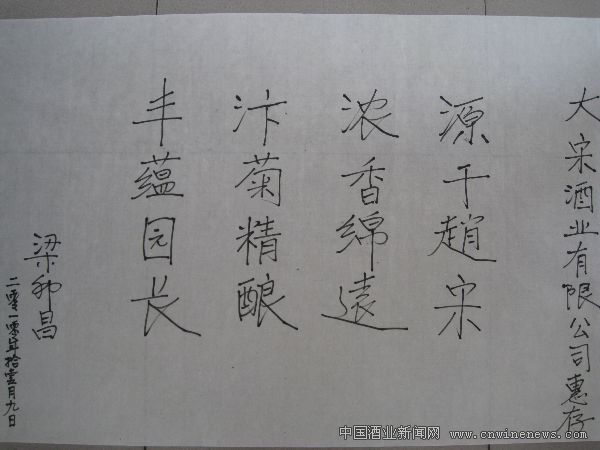 大宋酒业有限公司惠存
源于趙宋
浓香绵遠
汴菊精酿
丰蕴园长
梁邦昌
月九日
中国酒业新闻网 www.cnwinenews.com